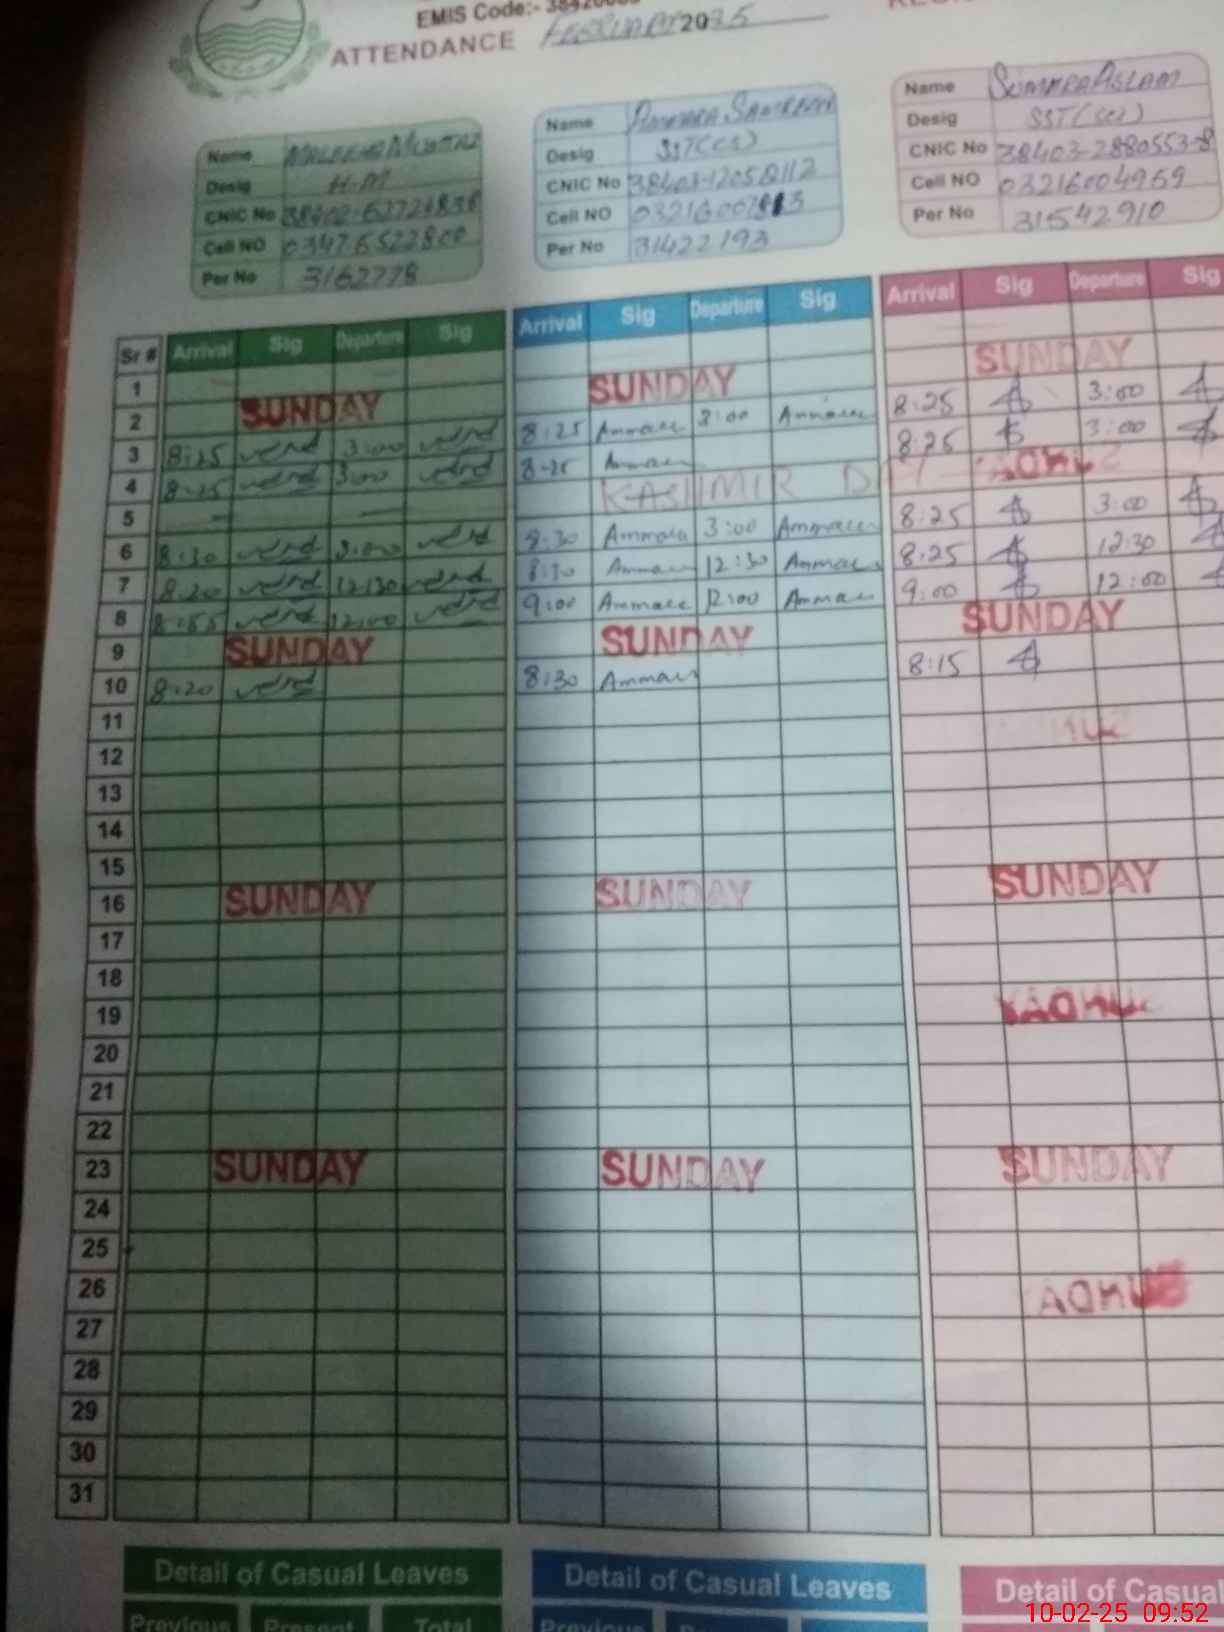 EMIS Code:-
ATTENDANCE FEBRUARY 2025
Name
Desig H-M
CNIC No
Cell NO 03476522800
Per No 3162778
Name AMMARA
Desig SST(CS)
CNIC No
Cell NO
Per No 31422193
Name SUMERA ASLAM
Desig SST(Sci)
CNIC No 38403-2880553-8
Cell NO 03216004969
Per No 31542910
Sr # Arrival Sig Departure Sig Arrival Sig Departure Sig Arrival Sig Departure Sig
1
2 SUNDAY SUNDAY SUNDAY
3 8:25 3:00 8:25 Ammara 3:00 Ammara 8:25 3:00
4 8:25 3:00 8:25 Ammara 8:25 3:00
5 KASHMIR DAY
6 8:30 3:00 8:30 Ammara 3:00 Ammara 8:25 3:00
7 8:20 12:30 8:30 Ammara 12:30 Ammara 8:25 12:30
8 8:55 12:00 9:00 Ammara 12:00 Ammara 9:00 12:00
9 SUNDAY SUNDAY SUNDAY
10 8:20 8:30 Ammara 8:15
11
12
13
14
15
16 SUNDAY SUNDAY SUNDAY
17
18
19
20
21
22
23 SUNDAY SUNDAY SUNDAY
24
25
26
27
28
29
30
31
Detail of Casual Leaves Detail of Casual Leaves Detail of Casual
Previous Present Total Previous
10-02-25 09:52